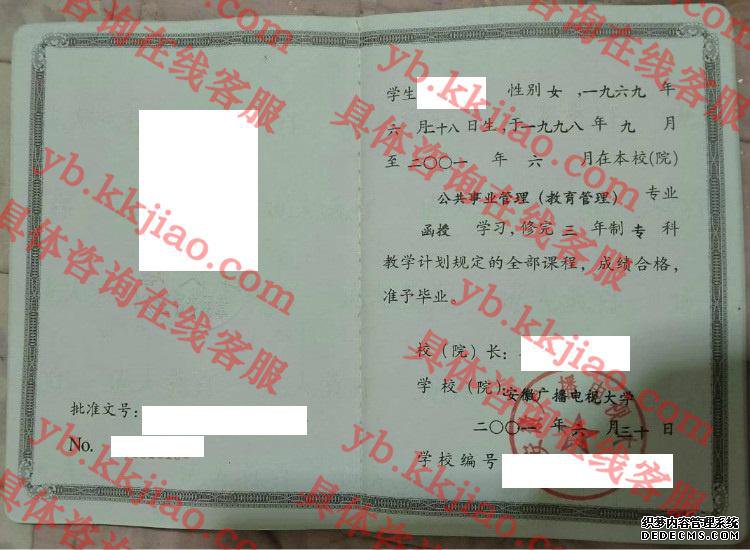 学生 性别 女 ,一九六九 年
六 月二十八日生,于一九九八 年 九 月
至 二〇〇一 年 六 月在本校(院)
公共事业管理(教育管理) 专业
函授 学习,修完 三 年制 专 科
教学计划规定的全部课程,成绩合格,
准予毕业。
校(院)长:
学校(院)安徽广播电视大学
二〇〇一 年 六 月三十日
学校编号
批准文号:
No.
yb.kkjiao.com
具体咨询在线客服
yb.kkjiao.com
具体咨询在线客服
yb.kkjiao.com
具体咨询在线客服
yb.kkjiao.com
具体咨询在线客服
yb.kkjiao.com
具体咨询在线客服
yb.kkjiao.com
具体咨询在线客服
织梦内容管理系统
DEDECMS.COM